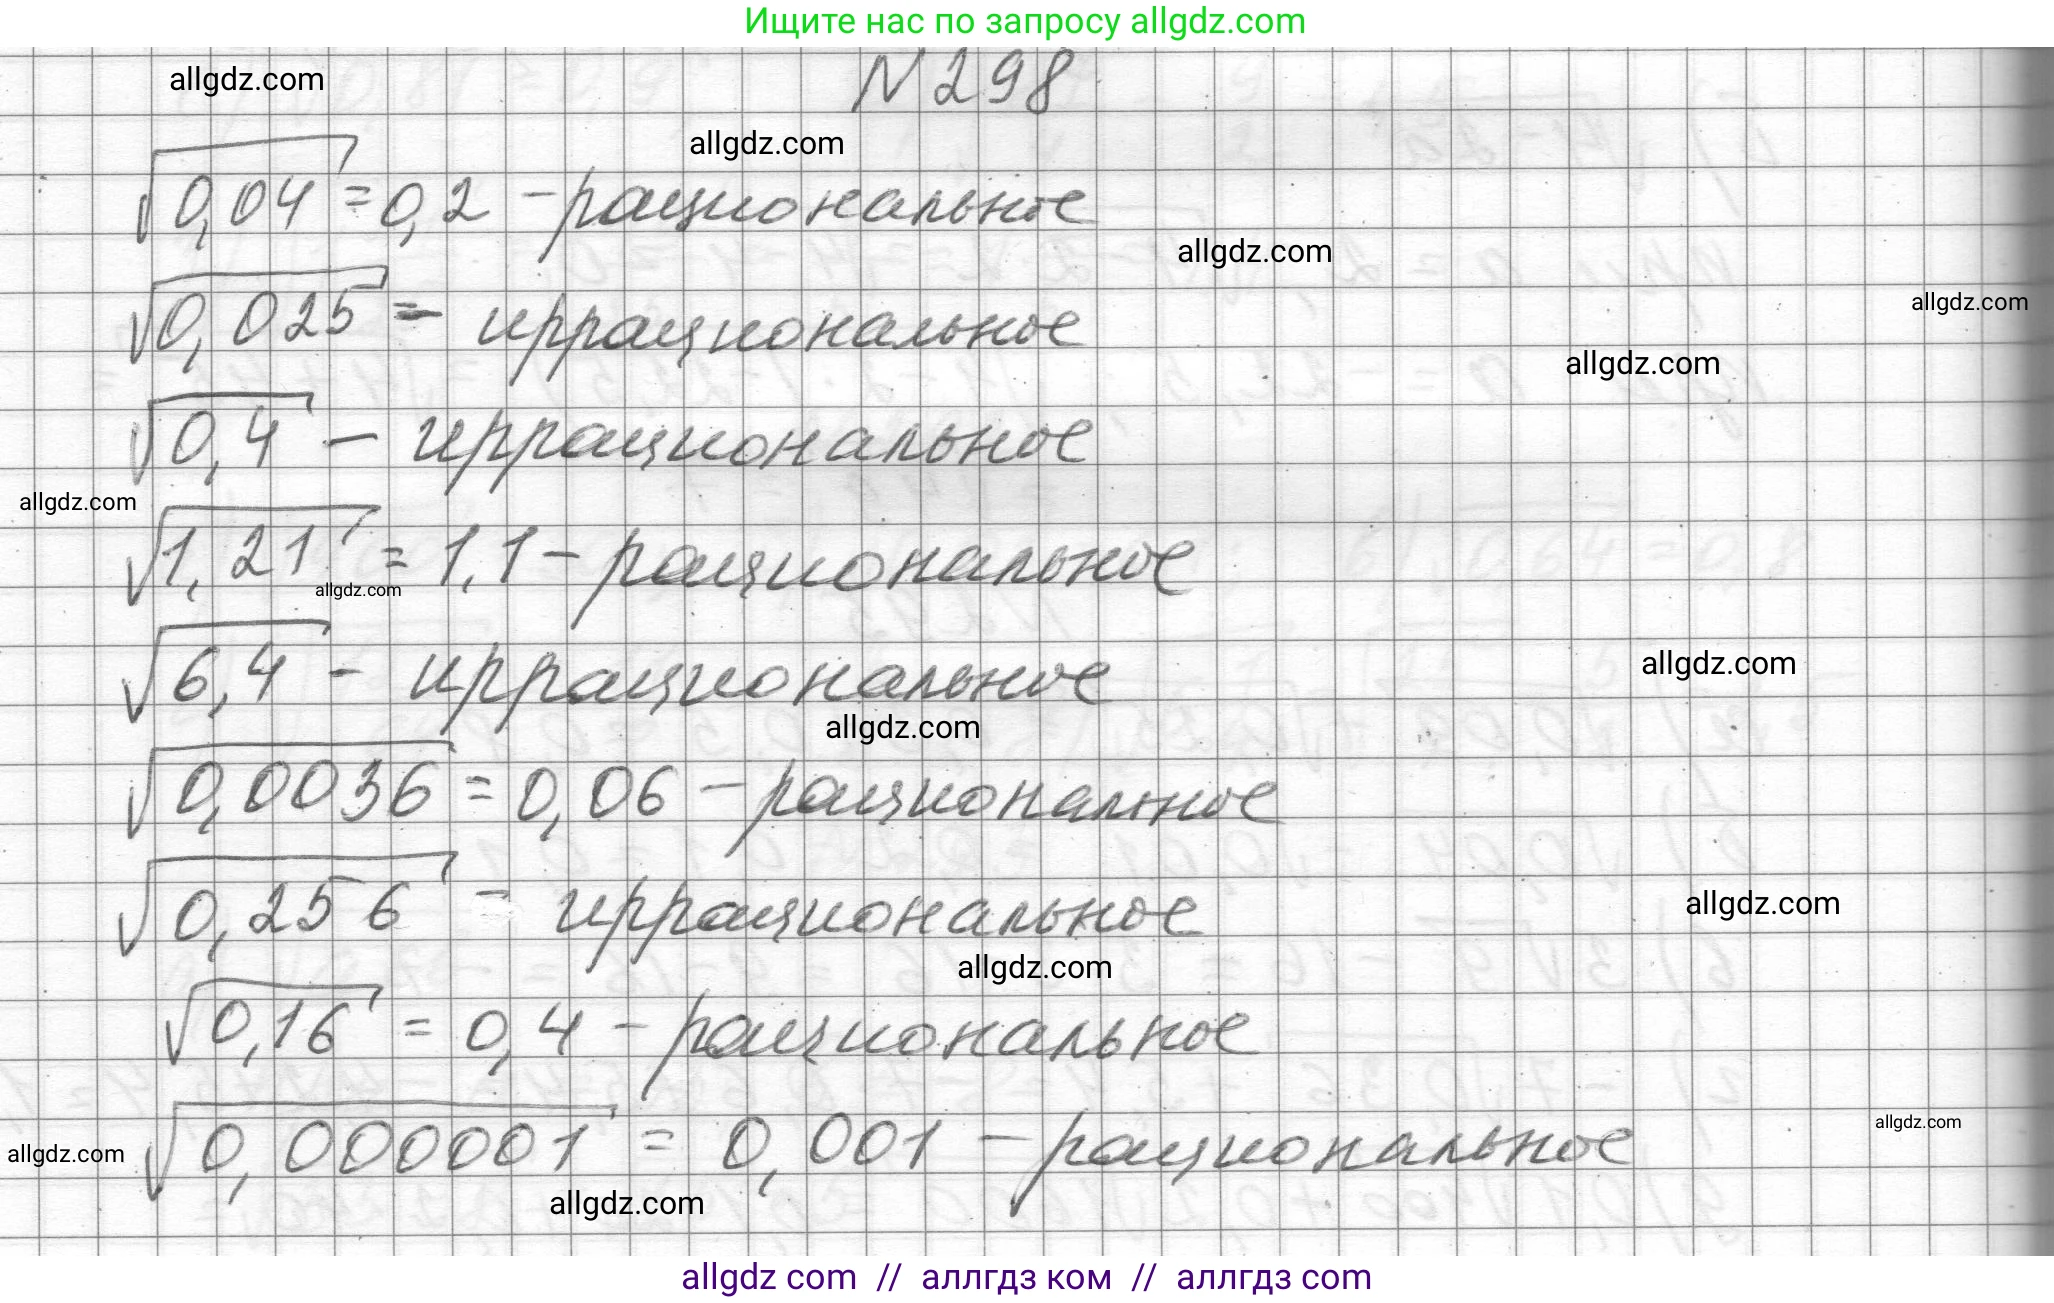 Ищите нас по запросу allgdz.com
№ 298
allgdz.com
allgdz.com
√0,04 = 0,2 - рациональное
allgdz.com
allgdz.com
√0,025 - иррациональное
allgdz.com
√0,4 - иррациональное
allgdz.com
√1,21 = 1,1 - рациональное
allgdz.com
√6,4 - иррациональное
allgdz.com
allgdz.com
√0,0036 = 0,06 - рациональное
√0,256 - иррациональное
allgdz.com
allgdz.com
√0,16 = 0,4 - рациональное
√0,000001 = 0,001 - рациональное
allgdz.com
allgdz.com
allgdz.com
allgdz com // аллгдз ком // аллгдз com